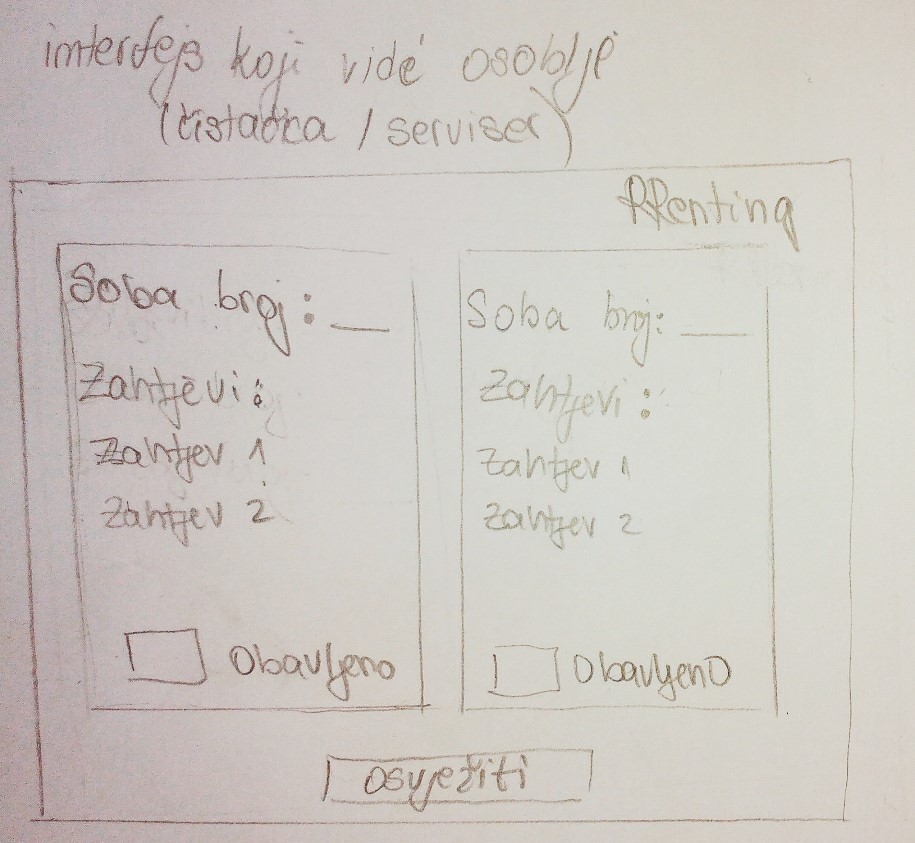 interfejs koji vide osoblje
(čistačica / serviser)
RRenting
Soba broj: __
Zahtjevi:
Zahtjev 1
Zahtjev 2
Obavljeno
Soba broj: __
Zahtjevi:
Zahtjev 1
Zahtjev 2
Obavljeno
Osvježiti